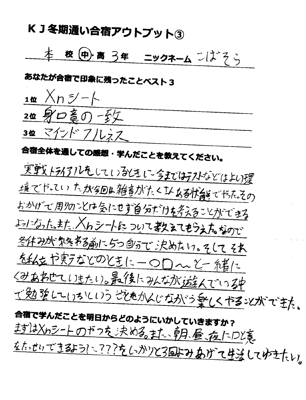 KJ冬期通い合宿アウトプット③
本 校 中・高 3年 ニックネーム こばそう
あなたが合宿で印象に残ったことベスト3
1位 Xnシート
2位 身口意の一致
3位 マインドフルネス
合宿全体を通しての感想・学んだことを教えてください。
実戦トライアルをしているときに今まではテストなどはよい環
境でやっていたが今回は雑音がたくさんある状態でやった。その
おかげで周りのことは気にせず自分だけを考えることができる
ようになった。また、Xnシートについて教えてもらえたなので
冬休みが終わる前に5つ自分で決めたい。そして それ
や実力などのときに一〇口〜と一緒に
くみあわせていきたい。最後にみんなが遊んでいる中
で勉強して
楽しくやることができた。
合宿で学んだことを明日からどのようにいかしていきますか?
まずはXnシートのやつを決める。また、朝、昼、夜に口と意
できるように、???をしっかりと3回よみあげて生活してゆきたい。